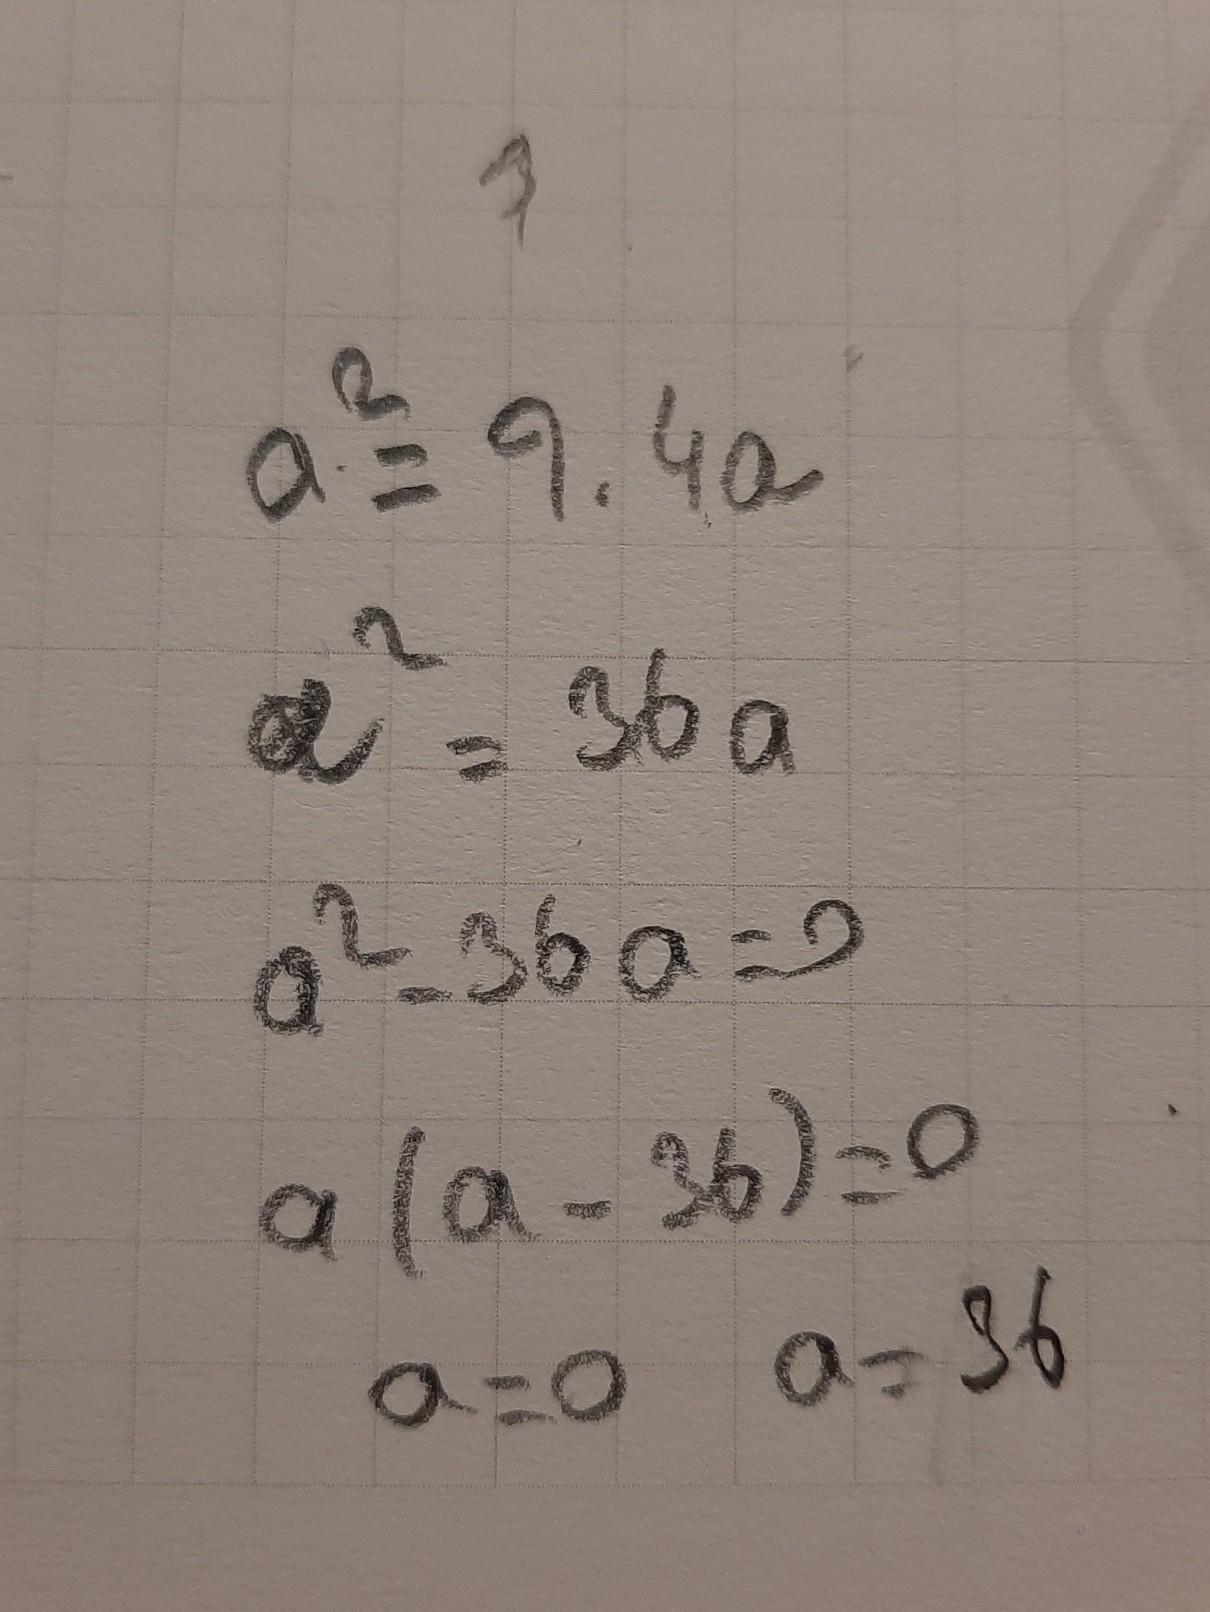 a² = 9.4a
a² = 36a
a² - 36a = 0
a(a - 36) = 0
a = 0 a = 36